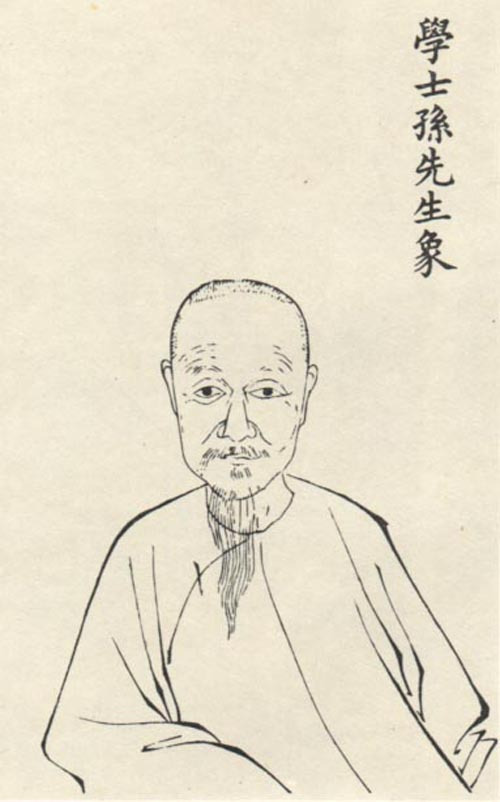 學士孫先生象